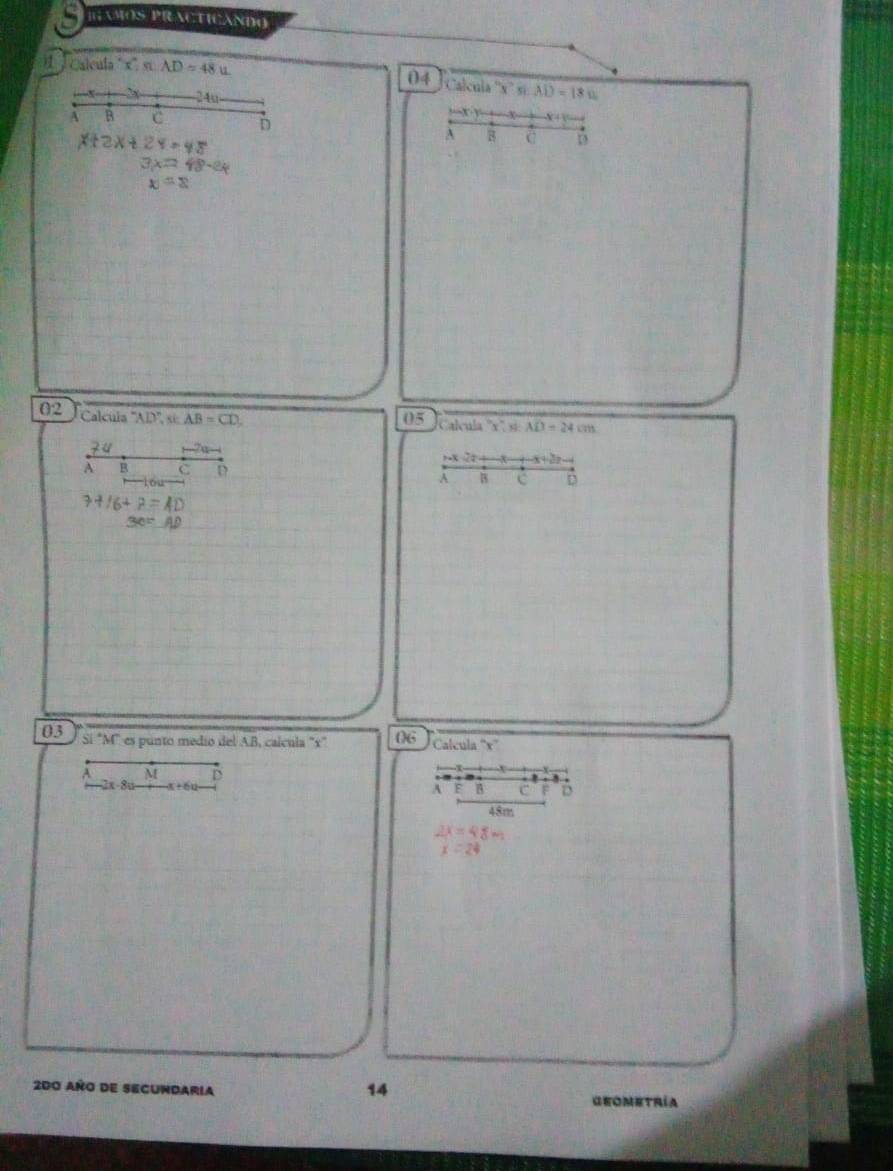 SIGAMOS PRACTICANDO
01 Calcula "x", si: AD = 48 u.
x 2x 24u
A B C D
x+2x+24=48
3x=48-24
x=8
02 Calcula "AD", si: AB = CD.
7u 7u
A B C D
16u
7+16+7=AD
30=AD
03 Si "M" es punto medio del AB, calcula "x"
A M D
2x-8u x+6u
04 Calcula "x" si: AD = 18 u.
x-y x x+y
A B C D
05 Calcula "x", si: AD = 24 cm.
x-2z x x+2z
A B C D
06 Calcula "x"
x x x
A E B C F D
48m
2x=48m
x=24
2DO AÑO DE SECUNDARIA
14
GEOMETRÍA